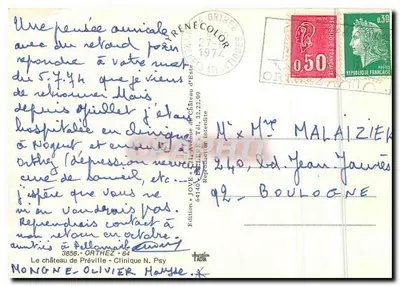 Une pensée amicale
avec du retard pour
répondre à votre mot
du 5.7.74 que je viens
de retrouver. Mais
depuis juillet j'étais
hospitalisée en clinique
à Nogent, et ensuite à
Orthez (dépression nerveuse
cure de sommeil, etc...
j'espère que vous ne
m'en voudrez pas.
Reprendrai contact à
mon retour en octobre.
amitiés à
3856.- ORTHEZ - 64
Le château de Préville - Clinique N. Psy
MONGNE-OLIVIER
PYRENECOLOR
Edition « JOVE »
Reproduction interdite
ORTHEZ
1974
0.50
REPUBLIQUE FRANÇAISE
0,30
REPUBLIQUE FRANÇAISE
POSTES
Mr Mme MALAIZIER
240, bd Jean Jaurès
92 - BOULOGNE